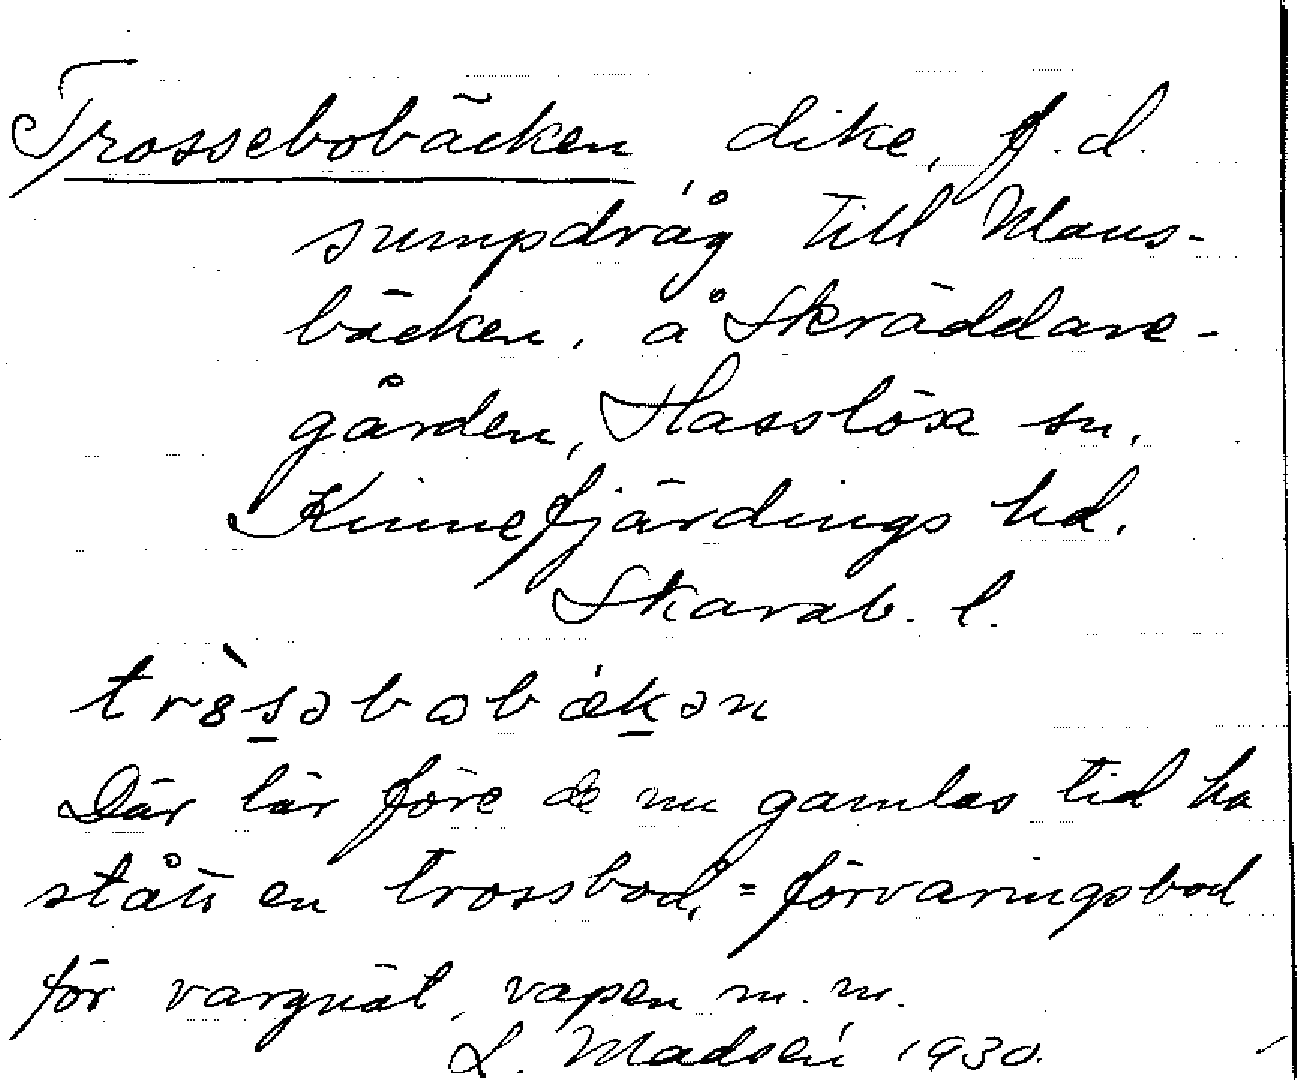 Trossebobäcken dike, f.d.
sumpdråg till Maus-
bäcken, å Skräddare-
gården, Hasslösa sn,
Kinnefjärdings hd.
Skarab. l.
tròsəbobǽkən
Där lär före de nu gamlas tid ha
stått en trossbod, = förvaringsbod
för vargnät, vapen m.m.
L. Madsén 1930.